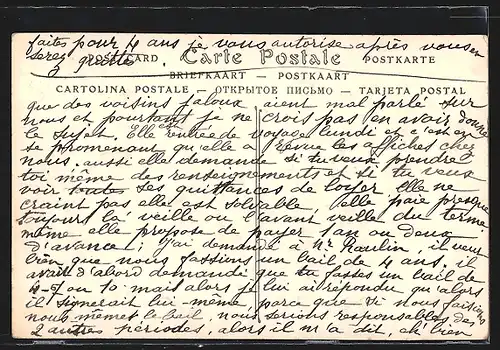 faites pour 4 ans je vous autorise après vous en
serez quitte
POST CARD Carte Postale POSTKARTE
BRIEFKAART — POSTKAART
CARTOLINA POSTALE — ОТКРЫТОЕ ПИСЬМО — TARJETA POSTAL
que des voisins jaloux aient mal parlé sur
nous et pourtant je ne crois pas en avoir donné
le sujet. Elle est rentrée de voyage lundi et c'est en
se promenant qu'elle a revue les affiches chez
nous. aussi elle demande si tu veux prendre
toi même des renseignements et si tu veux
voir toutes ses quittances de loyer elle ne
craint pas elle est solvable elle paie presque
toujours la veille ou l'avant veille du terme
même elle propose de payer 1 an ou deux
d'avance; J'ai demandé à Mr Raulin, il veut
bien que nous fassions un bail de 4 ans, il
avait d'abord demandé que tu fasses un bail de
ou 10 mait alors je lui ai répondu qu'alors
il signerait lui-même, parce que si nous faisions
nous mêmes le bail, nous serions responsables des
2 autres périodes, alors il m'a dit, eh bien